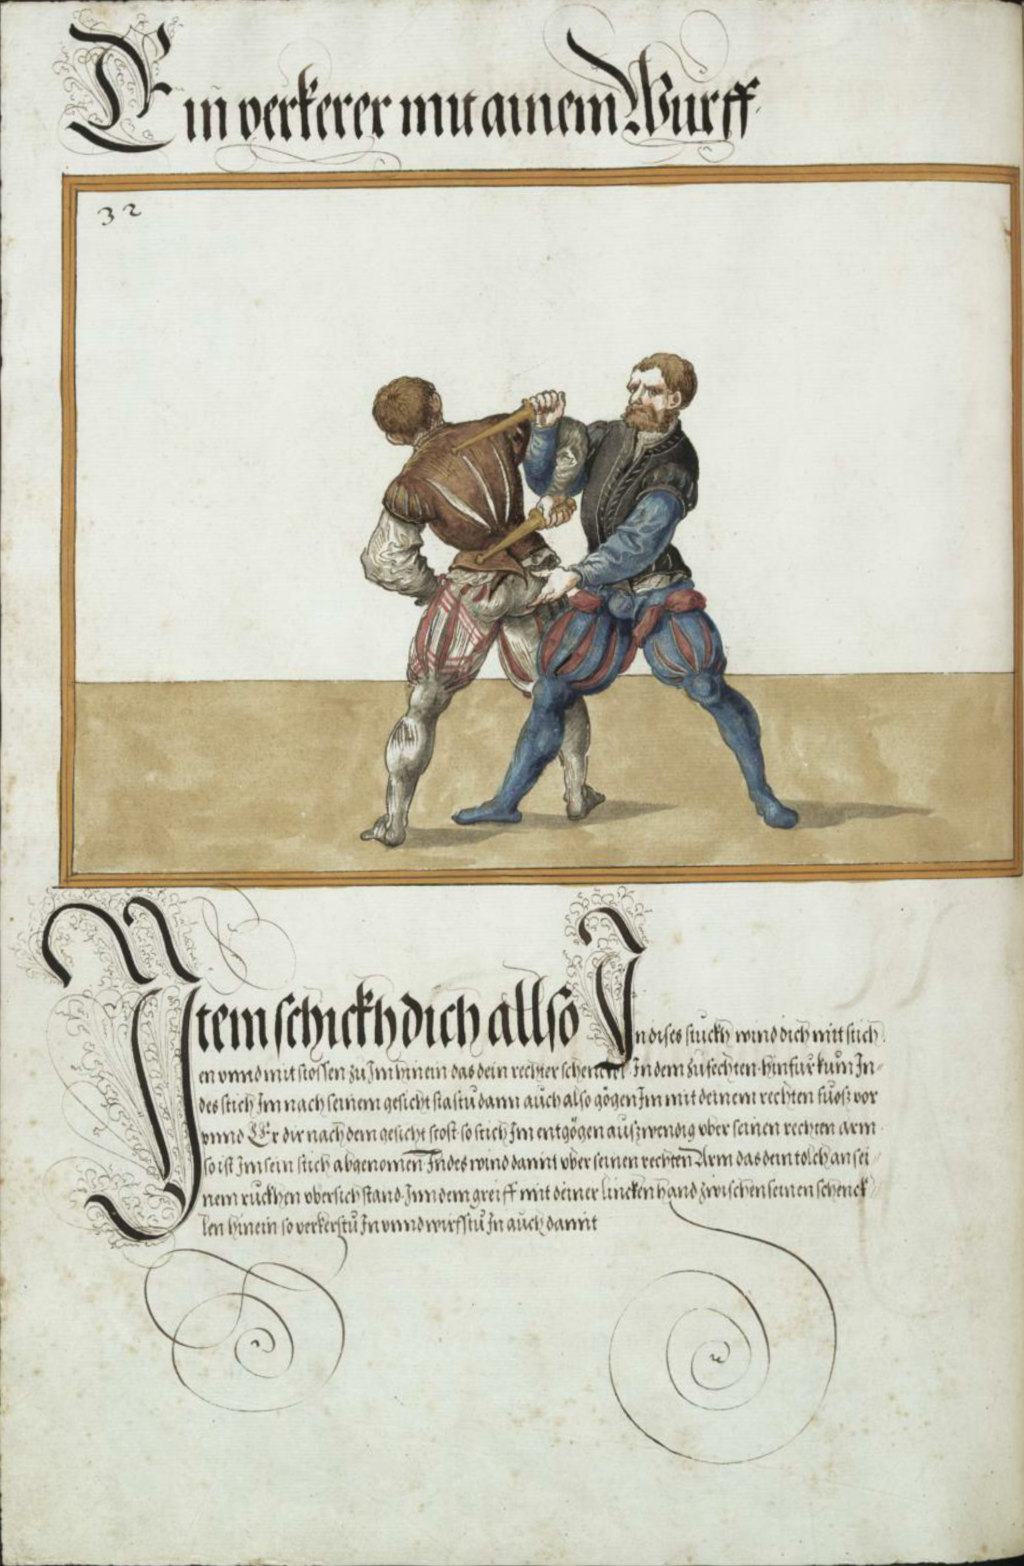 Ein verkerer mit ainem Wurff
32
Item schickh dich allso In dises stuckh wind dich mitt stich
en vnnd mit stossen zu Im hinein das dein rechter schenckel In dem zufechten hinfür kum In-
des stich Im nach seinem gesicht stastu dann auch also gögen Im mit deinem rechten fuosz vor
vnnd Er dir nach dem gesicht stost so stich Im entgögen auszwendig vber seinen rechten arm
so ist Im sein stich abgenomen Indes wind damit vber seinen rechten Arm das dein tolch an sei-
nem ruckhen vbersich stand Inn dem greiff mit deiner lincken hand zwischen seinen schenck
len hinein so verkerstu In vnnd wirfstu In auch damit